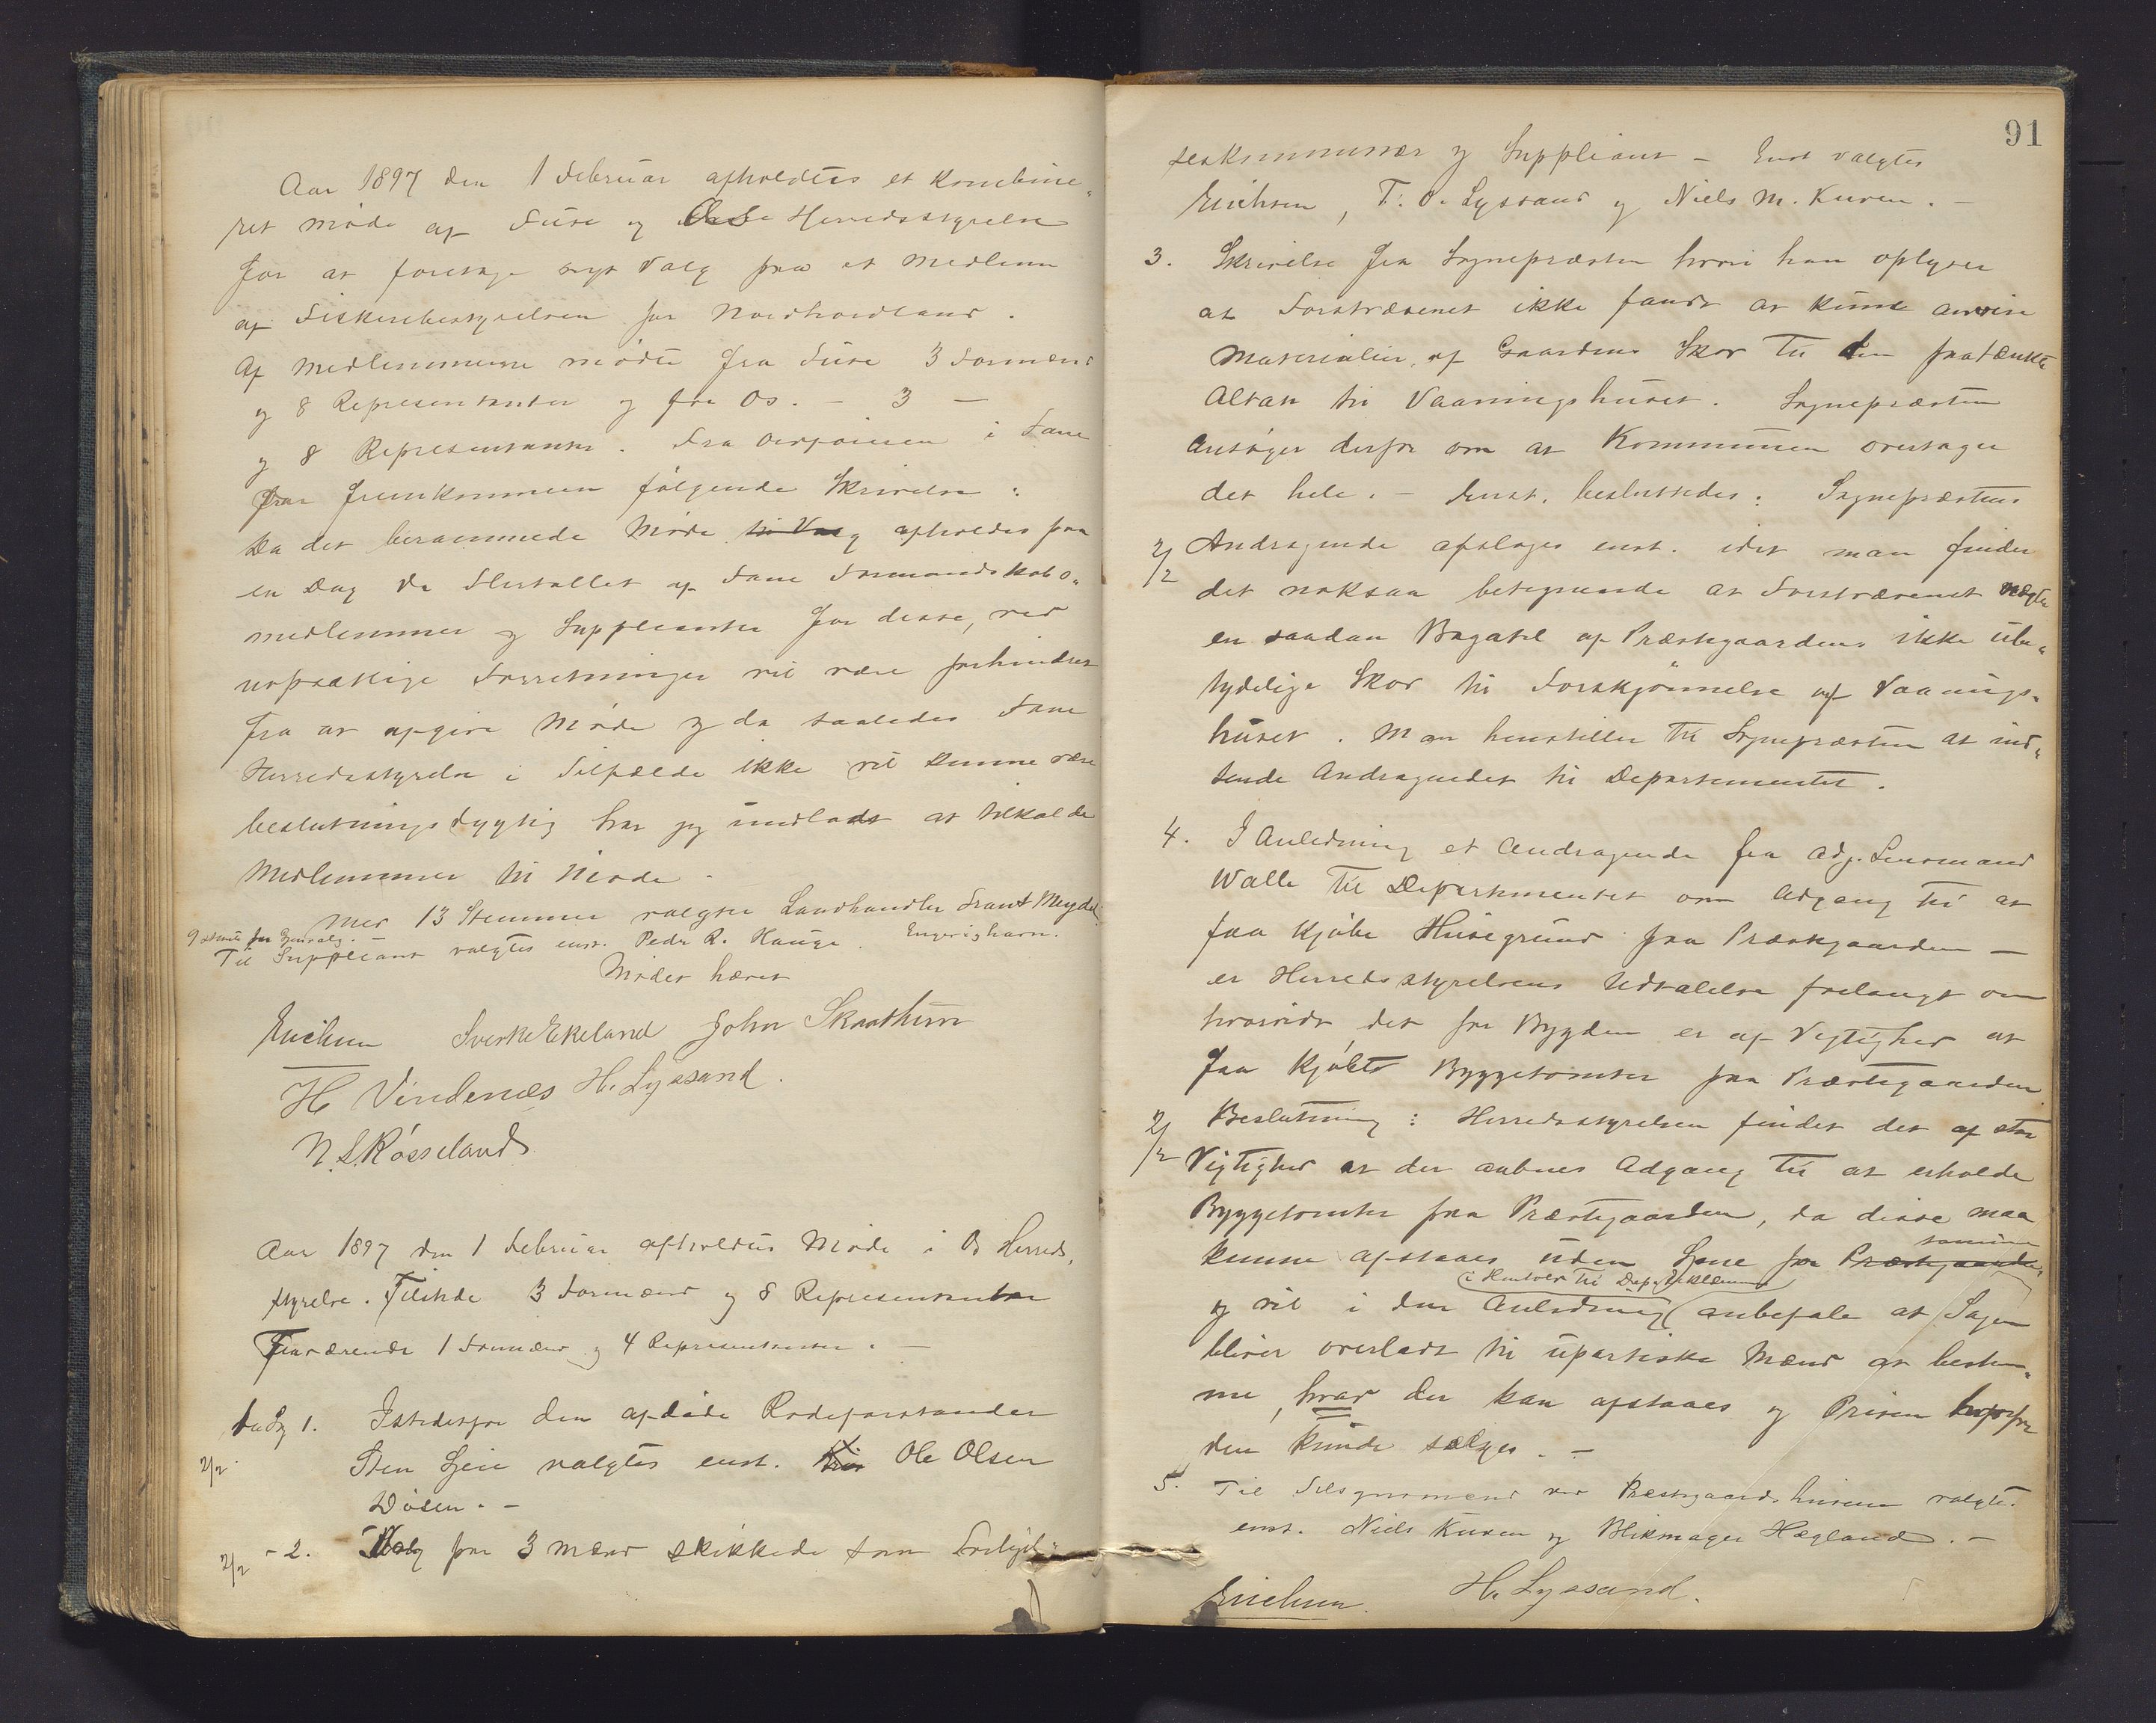 Aar 1897 den 1 Februar afholdtes et kombine„
ret møde af Fuse og Os Herredsstyrelse
for at foretage nyt Valg paa et Medlem
af Fiskeribestyrelsen for Nordhordland.
Af Medlemmerne mødte fra Fuse 3 Formænd
og 8 Repræsentanter og fra Os. – 3 –
og 8 Repræsentanter. Fra Ordføreren i Fane
var fremkommen følgende Skrivelse:
Da det berammede Møde til Valg afholdes paa
en Dag da Flertallet af Fane Formandskabs„
medlemmer og Suppleanter for disse, ved
uopsættlige Forretninger vil være forhindret
fra at afgive Møde og da saaledes Fane
Herredsstyrelse i Tilfælde ikke vil kunne være
beslutningsdygtig har jeg undladt at tilkalde
Medlemmer til Møde.
Med 13 Stemmer valgtes Landhandler Frant Meydel
9 stemte for Gjenvalg. Engevighavn.
Til Suppleant valgtes enst. Peder R. Hauge.
Mødet hævet
Erichsen Sverke Ekeland John Skaathun
H Vindenæs H. Lyssand.
N. L. Røsseland
Aar 1897 den 1 Februar afholdtes Møde i Os Herreds„
styrelse. Tilstede 3 Formænd og 8 Repræsentanter
Fraværende 1 Formænd og 4 Repræsentanter. –
Sag 1. Istedetfor den afdøde Rodeforstander
2/2 Sten Gjeie valgtes enst. Ole Olsen
Døsen. –
2/2 – 2. Valg paa 3 Mænd skikkede som Forligel„
91
seskommissær og Suppleant – Enst valgtes
Erichsen, T. O. Lyssand og Niels M. Kuven. –
3. Skrivelse fra Sognepræsten hvori han oplyser
at Forstvæsenet ikke fandt at kunne anvise
Materialier af Gaardens Skov til den paatænkte
Altan til Vaaningshuset. Sognepræsten
ansøger derfor om at Kommunen overtager
det hele. – Enst. besluttedes: Sognepræstens
2/2 Andragende afslages enst. idet man finder
det noksaa betegnende at Forstvæsenet nægter
en saadan Bagatel af Præstegaardens ikke ube„
tydelige Skov til Forskjønnelse af Vaanings„
huset. Man henstiller til Sognepræsten at ind„
sende Andragendet til Departementet.
4. I Anledning et Andragende fra Adj. Lensmand
Walle til Departementet om Adgang til at
faa kjøbe Husegrund paa Præstegaarden –
er Herredsstyrelsens Udtalelse forlangt om
hvorvidt det for Bygden er af Vigtighed at
faa kjøbt Byggetomter paa Præstegaarden
2/2 Beslutning: Herredsstyrelsen finder det af stor
Vigtighed at der aabnes Adgang til at erholde
Byggetomter paa Præstegaarden, da disse maa
kunne afstaaes uden Gene for Præstegaarden, samme
i Henhold til Dep. Reklame
og vil i den Anledning anbefale at Sagen
bliver overladt til upartiske Mænd at bestem„
me, hvad der kan afstaaes og Prisen hvorfor
den kunde sælges. –
5. Til Tilsynsmænd ved Præstegaards husene valgtes
enst. Niels Kuven og Blikmager Hægland. –
Erichsen. H. Lyssand.